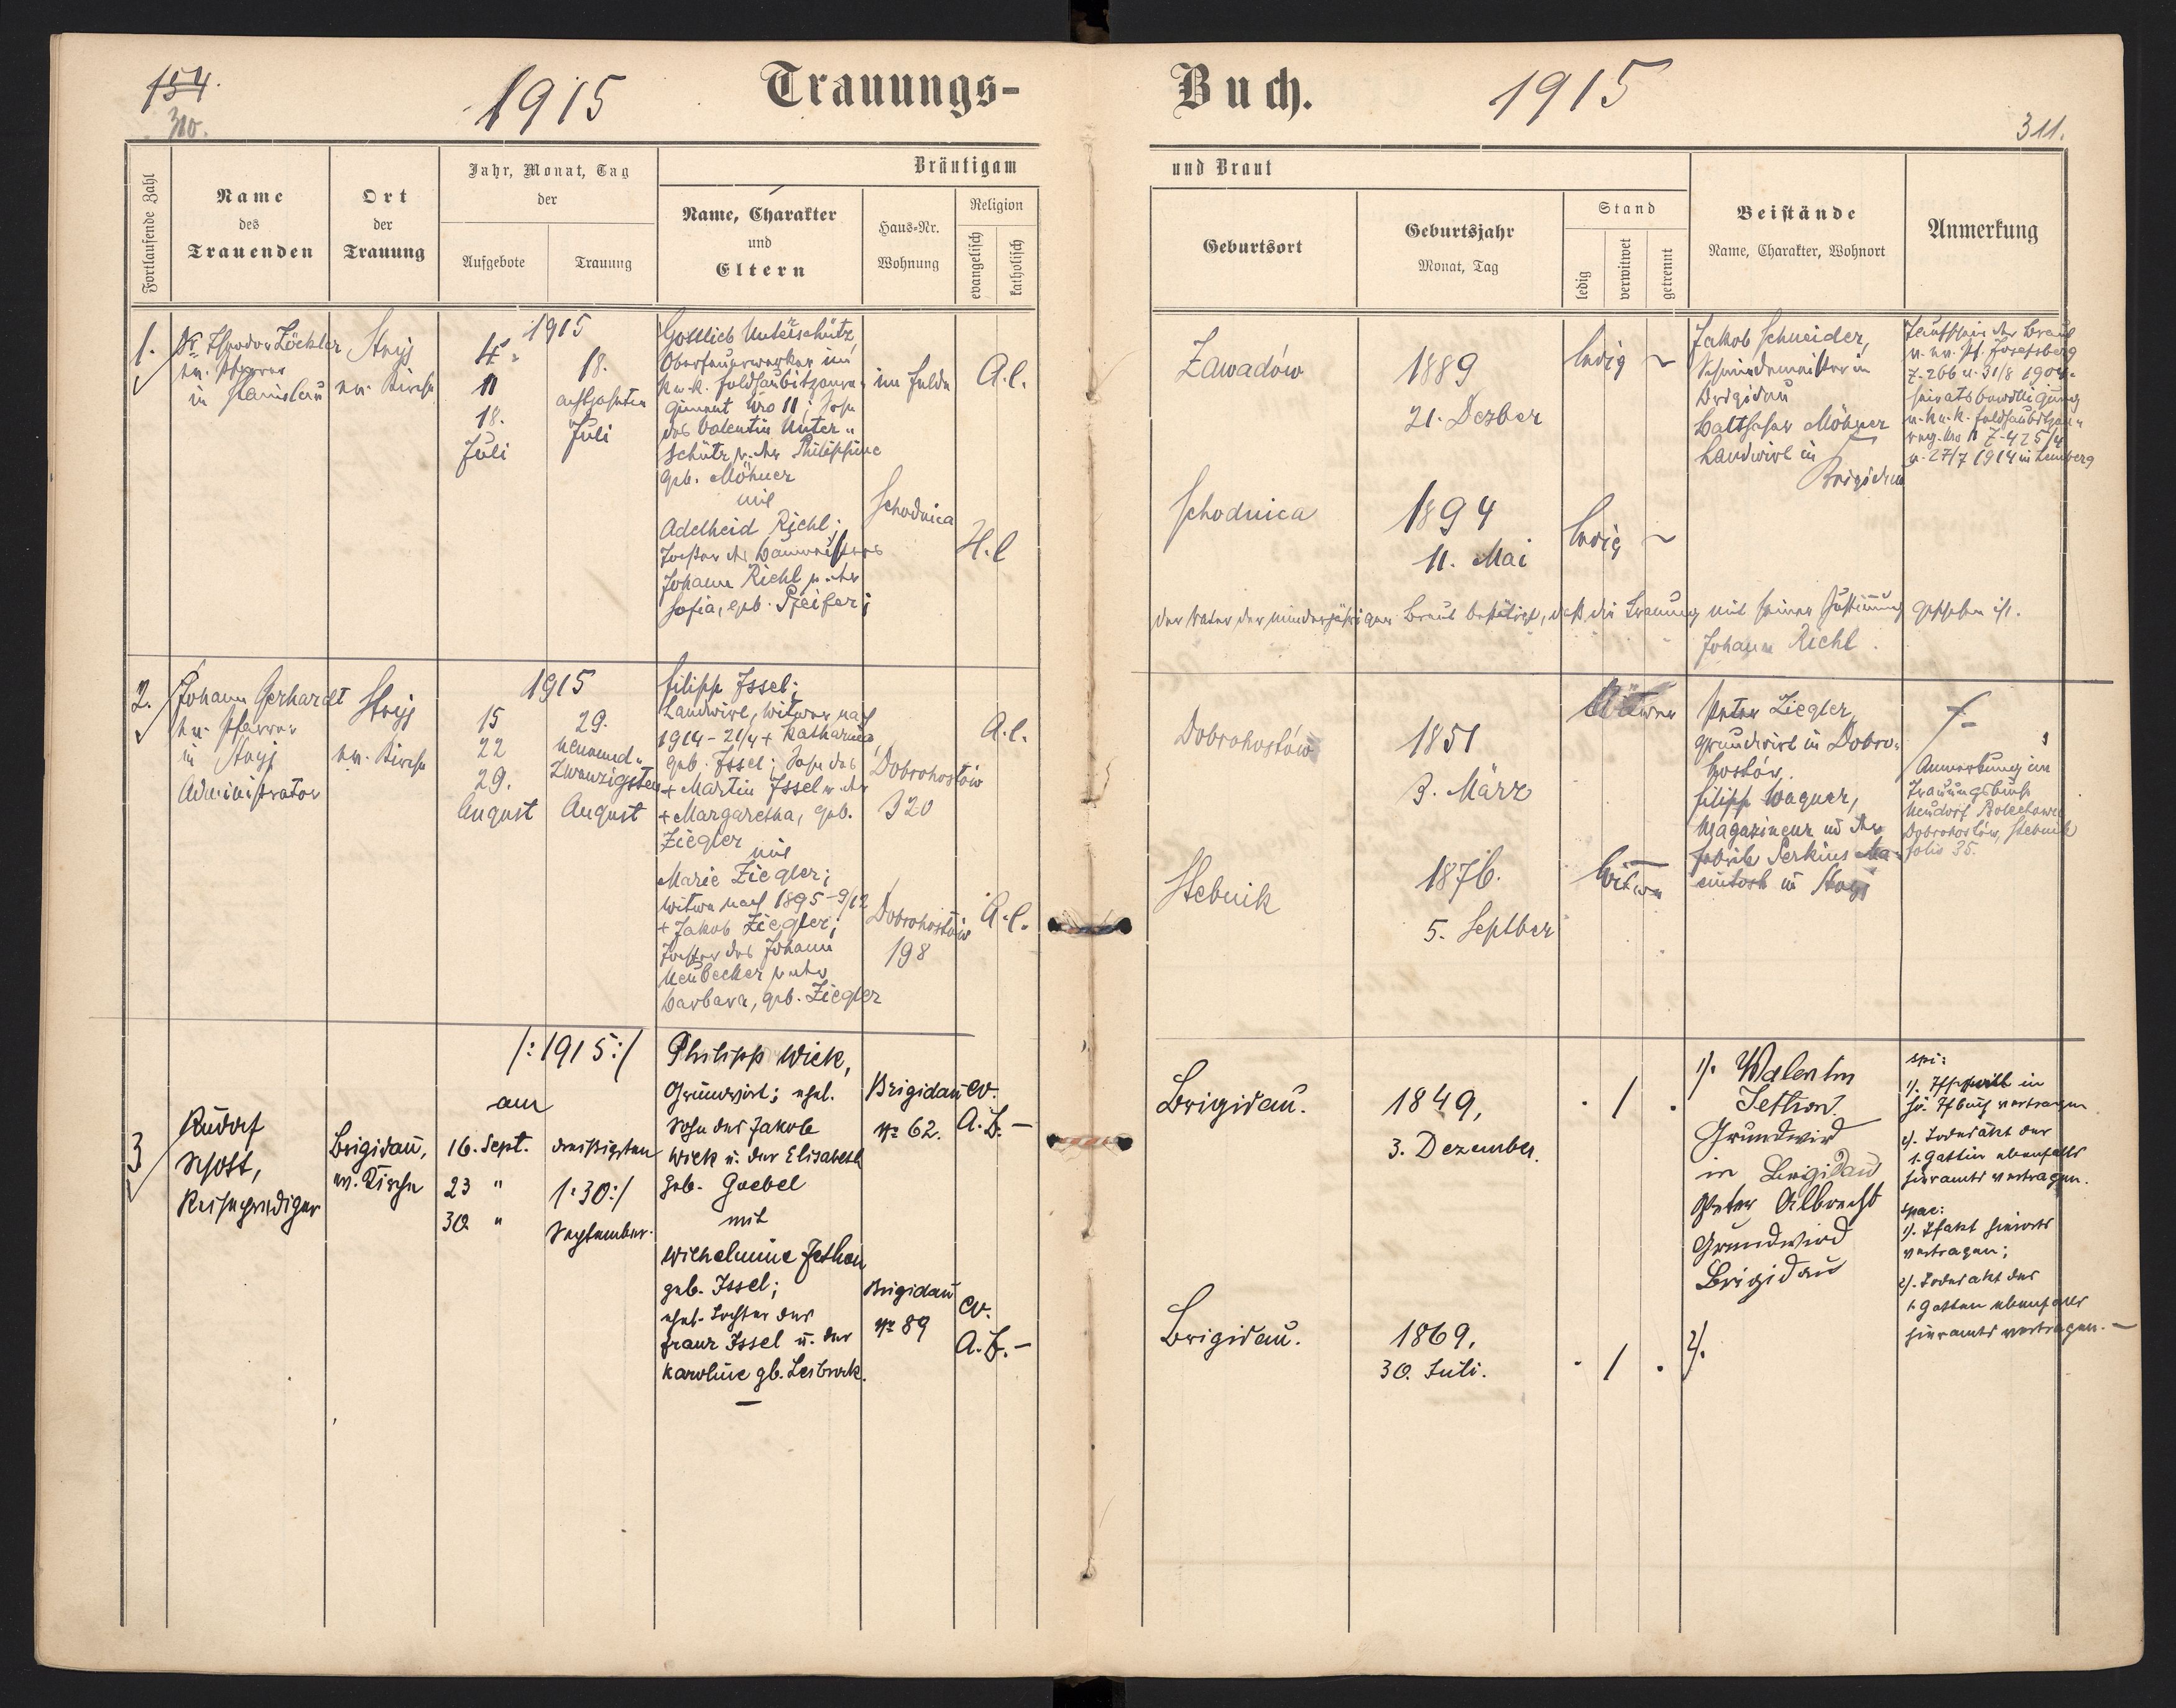 154.
310.
1915
Trauungs-
Buch.
1915
311.
Fortlaufende Zahl
Name
des
Trauenden
Ort
der
Trauung
Jahr, Monat, Tag
der
Aufgebote
Trauung
Bräutigam
Name, Charakter
und
Eltern
Haus-Nr.
Wohnung
Religion
evangelisch
katholisch
und Braut
Geburtsort
Geburtsjahr
Monat, Tag
Stand
ledig
verwitwet
getrennt
Beistände
Name, Charakter, Wohnort
Anmerkung
1.
Theodor Zöckler
ev. Pfarrer
in Stanislau
Stryj
ev. Kirche
1915
4.
11
18.
Juli
18.
achtzehnten
Juli
Gottlieb Unterschütz,
Oberfeuerwerker im
k. u. k. Feldhaubitzenre-
giment Nro 11; Sohn
des Valentin Unter-
schütz u. der Philippine
geb. Möhner
mit
Adelheid Riehl;
Tochter des Baumeisters
Johann Riehl u. der
Sofia, geb. Pfeifer;
im Felde
Schodnica
A.C.
H.C
Zawadów
1889
21. Dezber
ledig
Schodnica
1894
11. Mai
ledig
Jakob Schneider,
Schmiedemeister in
Brigidau
Balthasar Möhner
Landwirt in
Brigidau
Taufschein der Braut
v. ev. Pf. Josefsberg
Z. 266 v. 31/8 1904.
Heiratsbewilligung
v. k. u. k. Feldhaubitzen-
reg. Nro 11 Z. 425/4
v. 27/7 1914 in Lemberg
Der Vater der minderjährigen Braut bestätigt, daß die Trauung mit seiner Zustimmung geschehen ist.
Johann Riehl.
2.
Johann Gerhardt
ev. Pfarrer
in Stryj
Administrator
Stryj
ev. Kirche
1915
15
22
29.
August
29.
neunund-
zwanzigsten
August
Filipp Issel;
Landwirt, Witwer nach
1914-21/4 + Katharina,
geb. Issel; Sohn des
+ Martin Issel u. der
+ Margaretha, geb.
Ziegler
mit
Marie Ziegler;
Witwe nach 1895-9/12
+ Jakob Ziegler;
Tochter des Johann
Neubecker u. der
Barbara, geb. Ziegler
Dobrohostów
320
Dobrohostów
198
A.C.
A.C.
Dobrohostów
1851
3. März
Witwer
Stebnik
1876.
5. Septber
Witwe
Peter Ziegler,
Grundwirt in Dobro-
hostów.
Filipp Wagner,
Magazineur in der
Fabrik Perkins Ma-
cintosh in Stryj
Anmerkung im
Trauungsbuch
Neudorf Bolechowce
Dobrohostów, Stebnik
folio 35.
3
Rudolf
Schott,
Reiseprediger
Brigidau,
ev. Kirche
/:1915:/
am
16. Sept.
23 "
30. "
dreißigsten
/:30:/
September.
Philipp Wick,
Grundwirt; ehel.
Sohn des Jakob
Wick u. der Elisabeth
geb. Goebel
mit
Wilhelmine Jethon
geb. Issel;
ehel. Tochter des
Franz Issel u. der
Karoline gb. Leibrock.
Brigidau
№ 62.
Brigidau
№ 89
ev.
A.B.-
ev.
A.B.-
Brigidau.
1849,
3. Dezember.
. / .
Brigidau.
1869,
30. Juli.
. / .
1). Walentin
Jethon
Grundwird
in Brigidau
Peter Albrecht
Grundwird
Brigidau
2).
spi:
2). Todesakt der
1. Gattin ebenfalls
hieramts vertragen.
spae:
vertragen;
2). Todesakt des
1. Gatten ebenfalls
hieramts vertragen.-